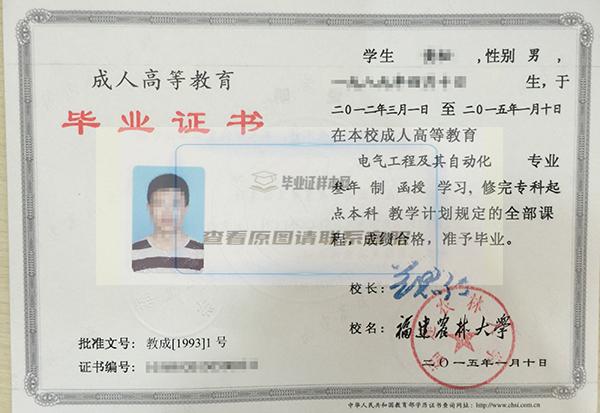 成人高等教育
毕业证书
学生 ,性别 男 ,
生,于
二〇一二年三月一日 至 二〇一五年一月十日
在本校成人高等教育
电气工程及其自动化 专业
叁年 制 函授 学习,修完专科起
点本科 教学计划规定的全部课
程,成绩合格,准予毕业。
毕业证样本网
查看原图请联系客服
校长:
校名: 福建农林大学
批准文号: 教成[1993]1 号
证书编号:
二〇一五年一月十日
中华人民共和国教育部学历证书查询网址: http://www.chsi.com.cn